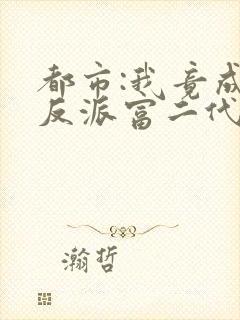 都市:我竟成
反派富二代
瀚哲